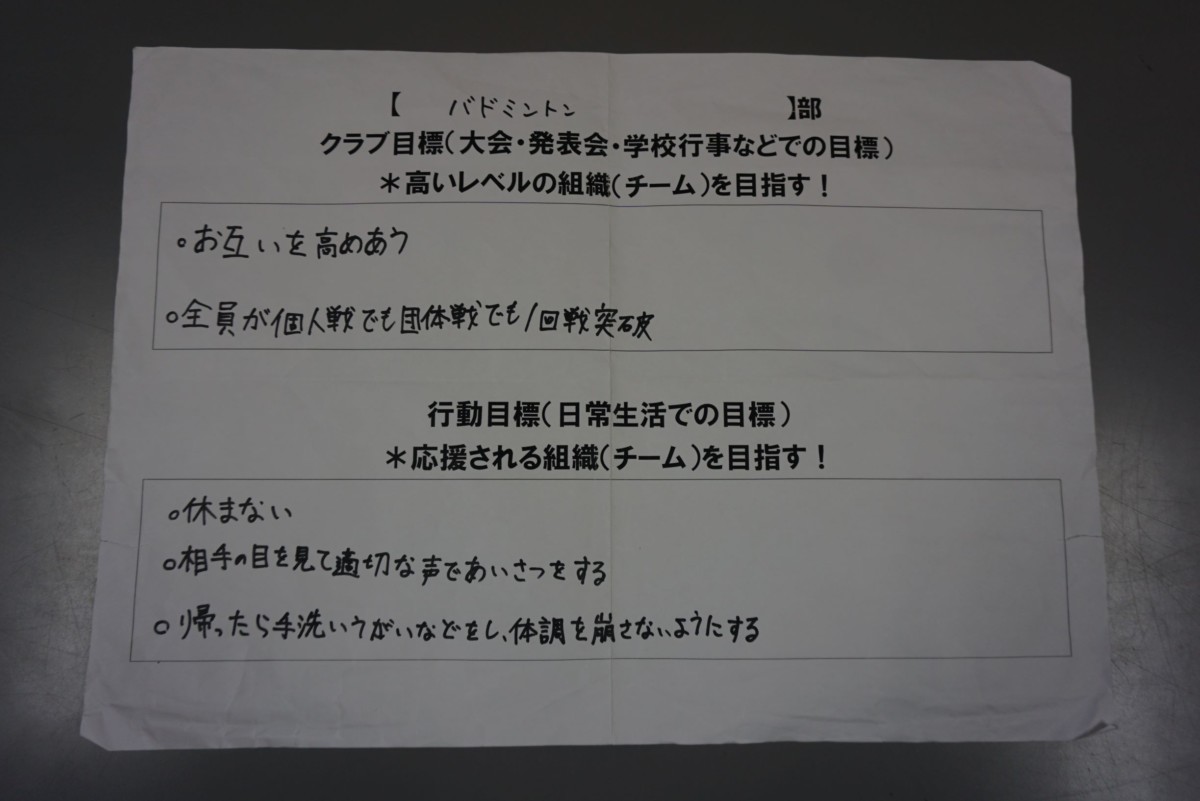 【 バドミントン 】部
クラブ目標(大会・発表会・学校行事などでの目標)
＊高いレベルの組織(チーム)を目指す！
○お互いを高めあう
○全員が個人戦でも団体戦でも1回戦突破
行動目標(日常生活での目標)
＊応援される組織(チーム)を目指す！
○休まない
○相手の目を見て適切な声であいさつをする
○帰ったら手洗いうがいなどをし、体調を崩さないようにする